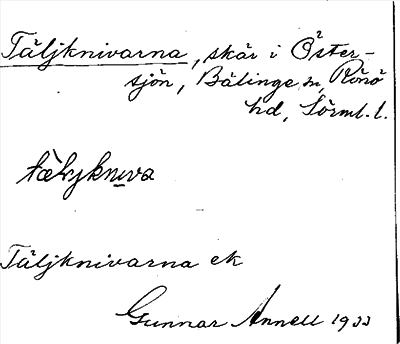 Täljknivarna, skär i Öster-
sjön, Bälinge sn, Rönö
hd, Sörml. l.
Täljknivarna ek
Gunnar Annell 1933